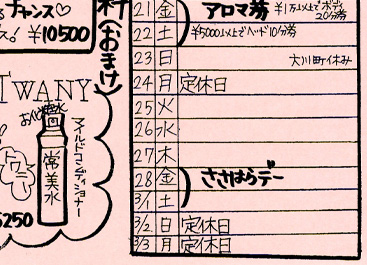 チャンス♡
¥10500
(おまけ)
TWANY
おくと化粧水
常美水
マイルドコンディショナー
トワニー
5250
21 金 アロマ券 ¥1万以上でボディ20分券
22 土 ¥5000以上でヘッド10分券
23 日 大川町休み
24 月 定休日
25 火
26 水
27 木
28 金 ささはらデー
3/1 土
3/2 日 定休日
3/3 月 定休日